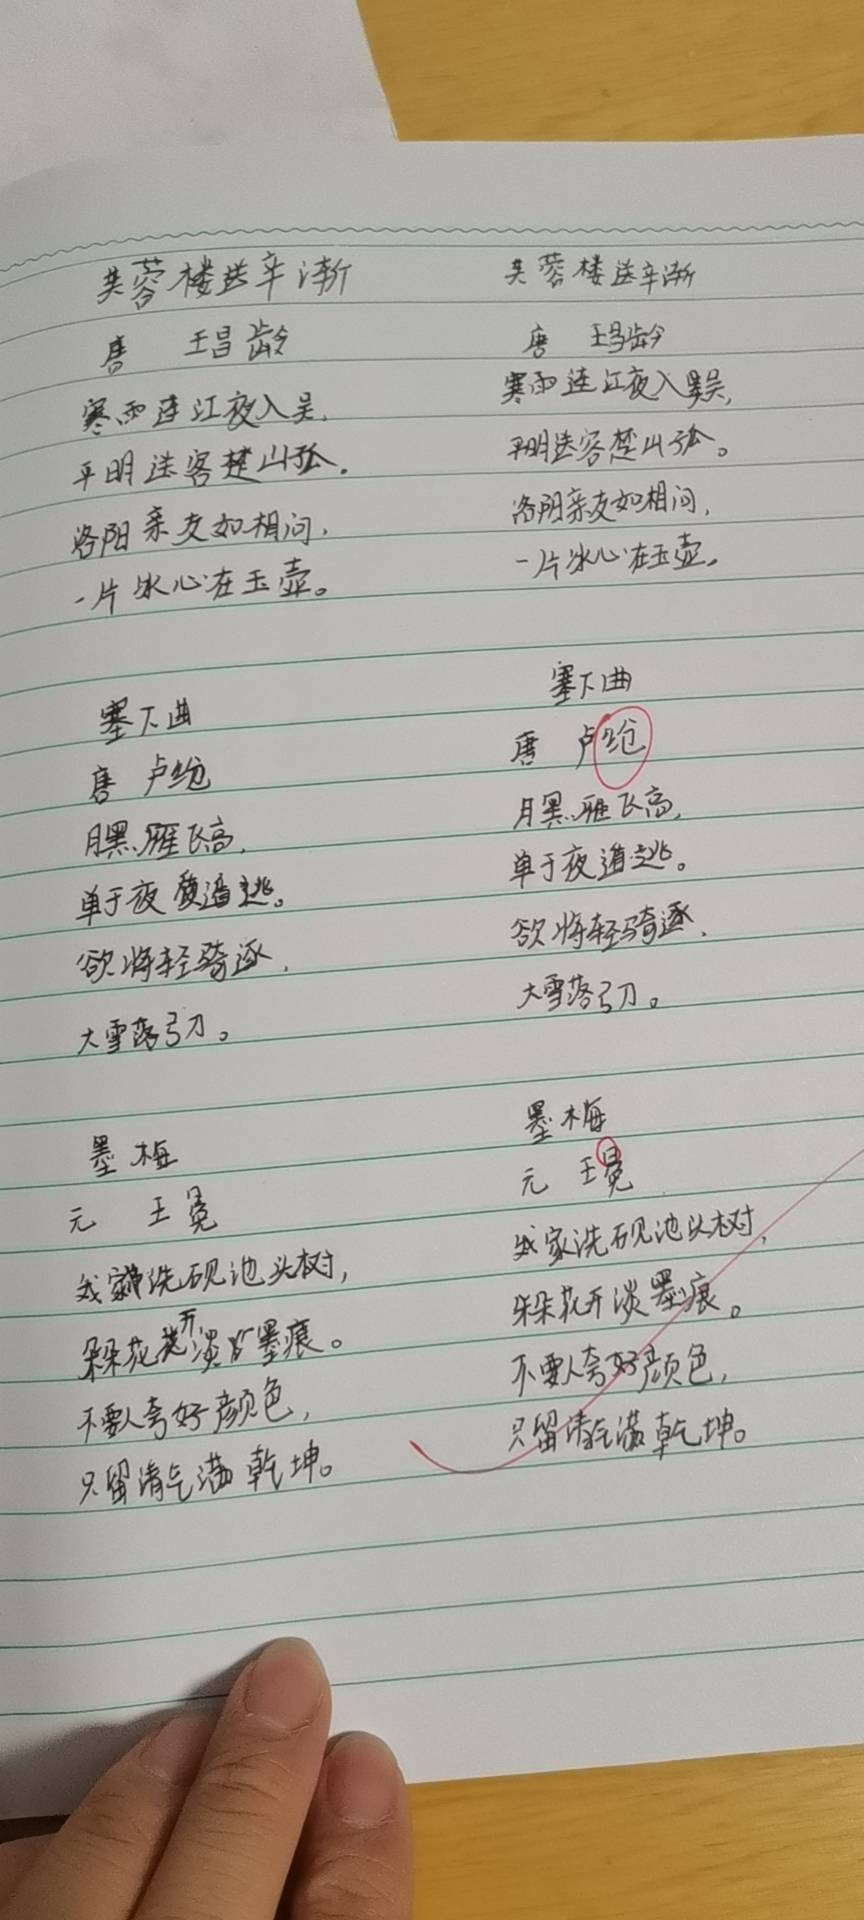 芙蓉楼送辛渐
唐 王昌龄
寒雨连江夜入吴,
平明送客楚山孤.
洛阳亲友如相问,
一片冰心在玉壶。
塞下曲
唐 卢纶
月黑雁飞高,
单于夜遁逃。
欲将轻骑逐,
大雪落弓刀。
墨梅
元 王冕
我家洗砚池头树,
朵朵花开淡墨痕。
不要人夸好颜色,
只留清气满乾坤。
芙蓉楼送辛渐
唐 王昌龄
寒雨连江夜入吴,
平明送客楚山孤。
洛阳亲友如相问,
一片冰心在玉壶。
塞下曲
唐 卢纶
月黑雁飞高,
单于夜遁逃。
欲将轻骑逐,
大雪落弓刀。
墨梅
元 王冕
我家洗砚池头树,
朵朵花开淡墨痕。
不要人夸好颜色,
只留清气满乾坤。